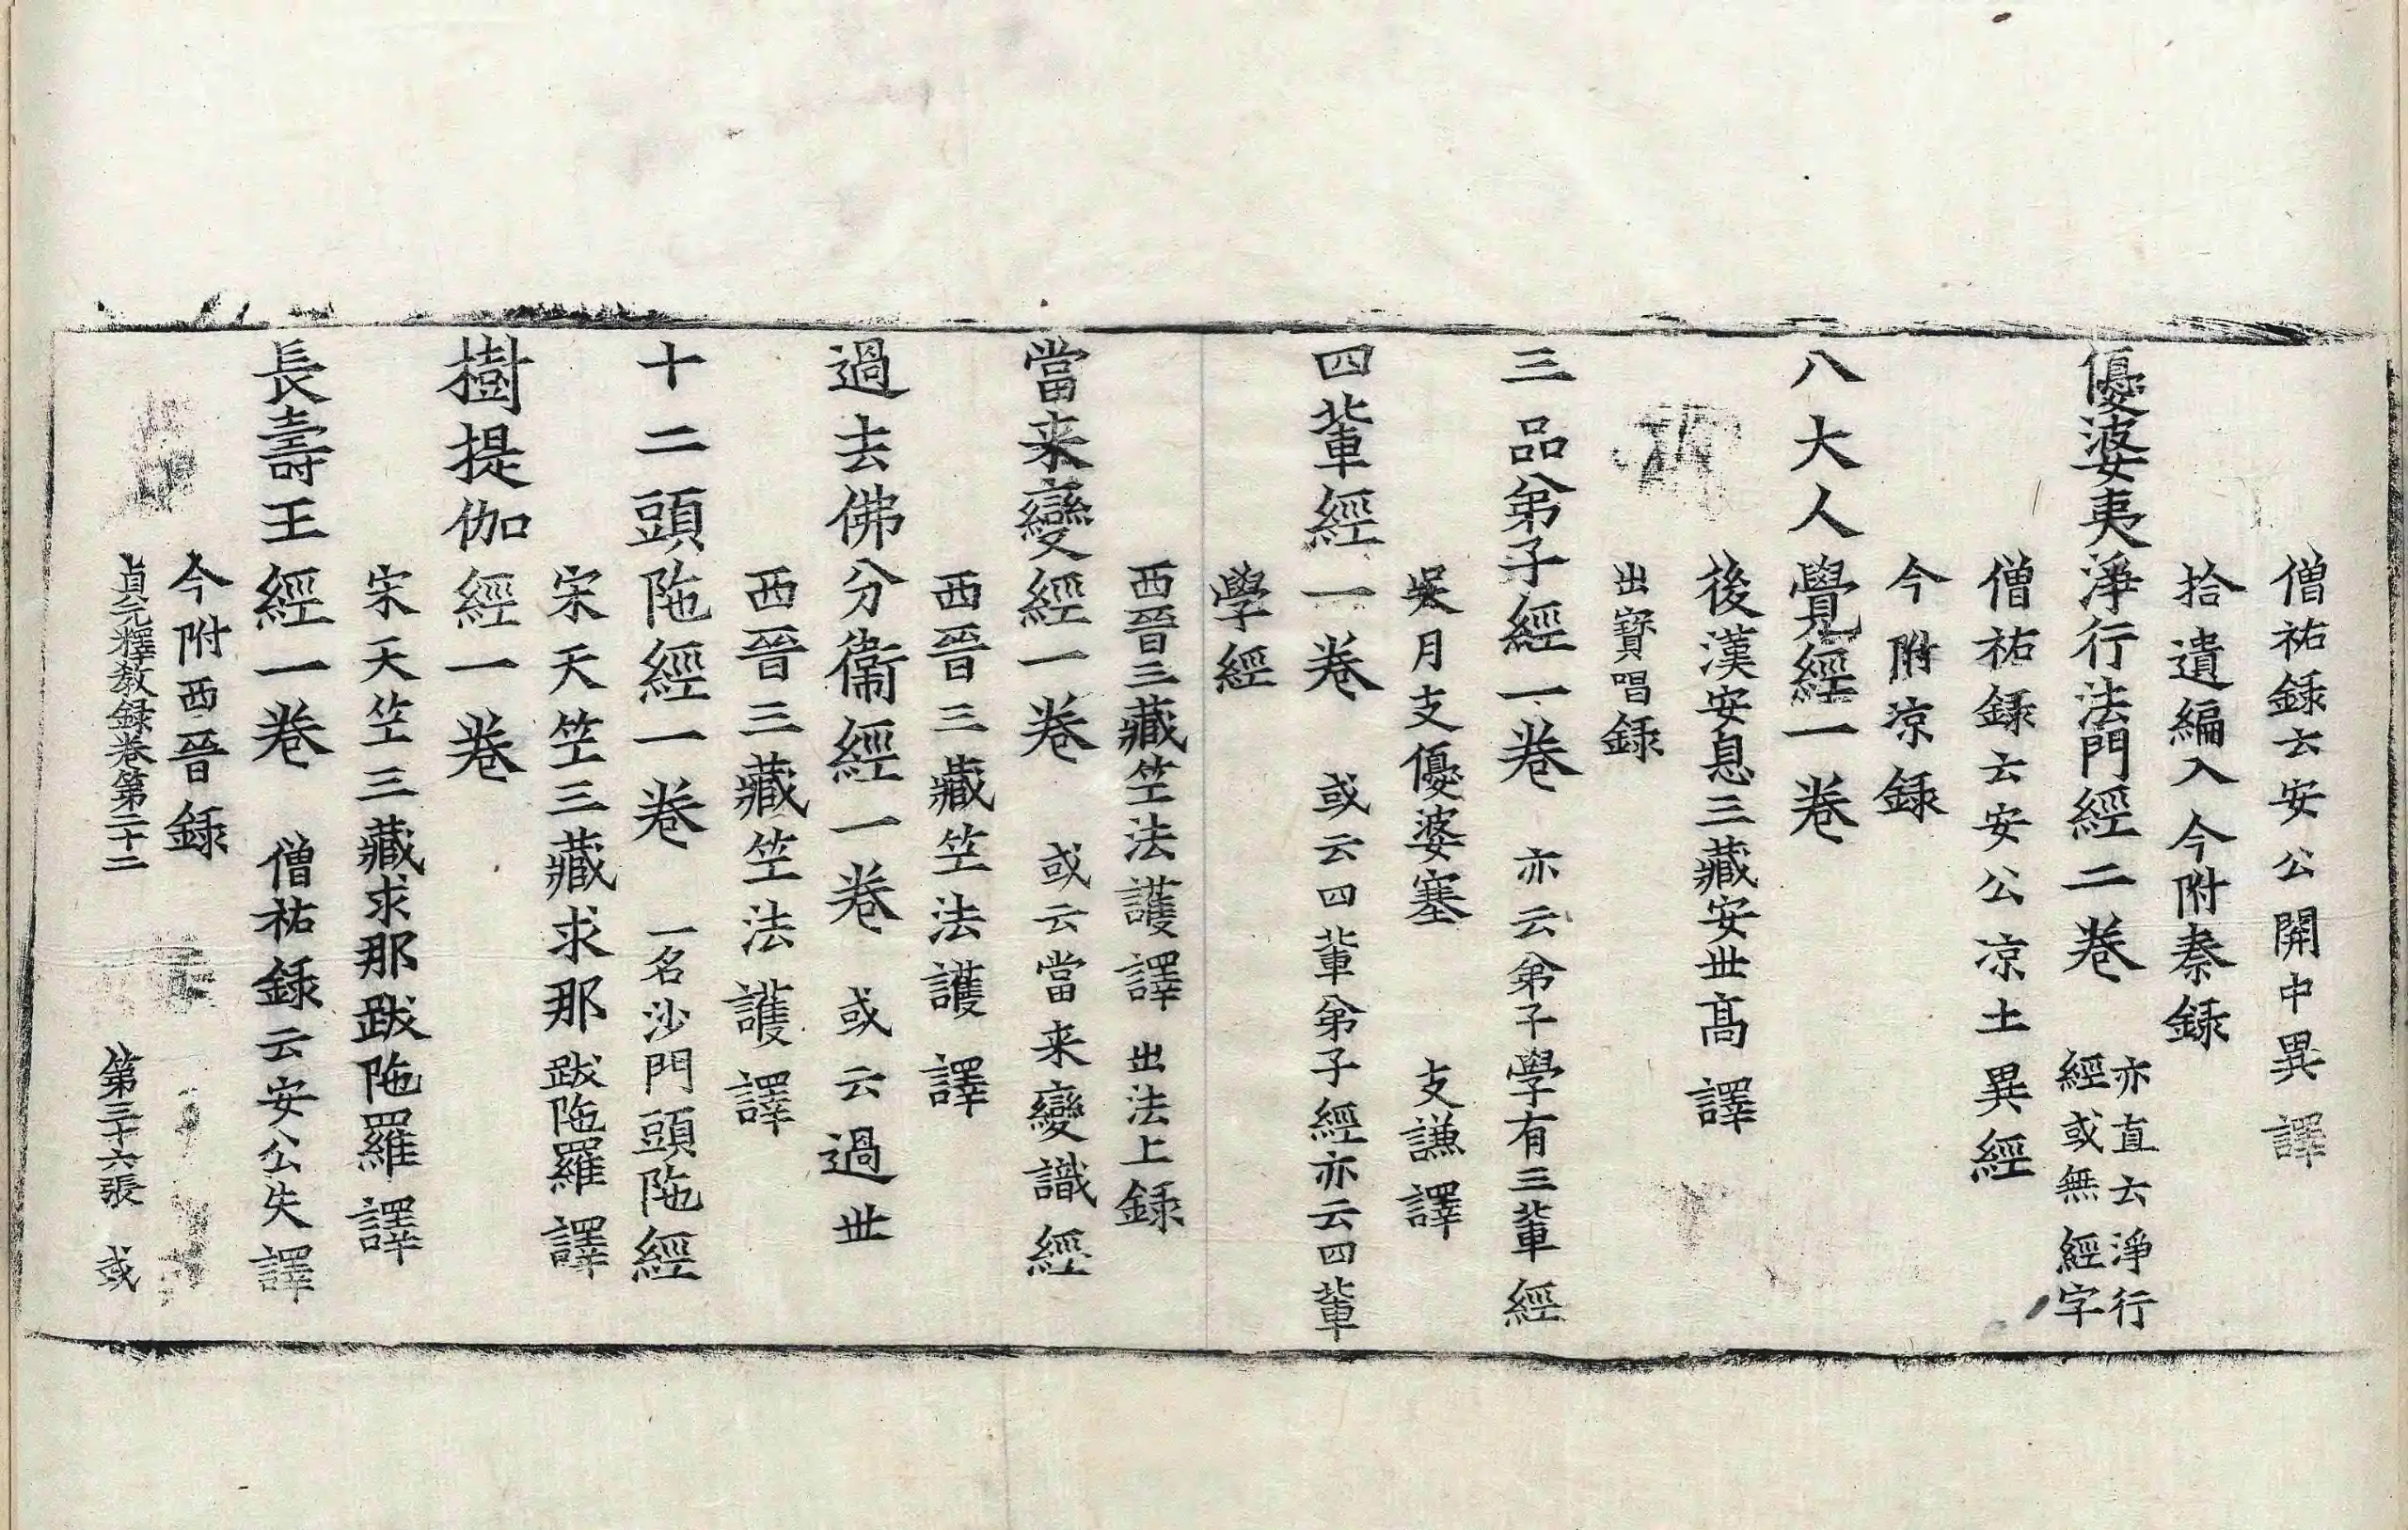 僧祐録云安公開中異譯
拾遺編入今附秦録
優婆夷淨行法門經二卷 亦直云淨行
經或無經字
僧祐録云安公凉土異經
今附凉録
八大人覺經一卷
後漢安息三藏安世高譯
出寶唱録
三品弟子經一卷 亦云弟子學有三輩經
吳月支優婆塞 支謙譯
四輩經一卷 或云四輩弟子經亦云四輩
學經
西晉三藏竺法護譯 出法上録
當来變經一卷 或云當来變識經
西晉三藏竺法護譯
過去佛分衞經一卷 或云過世
西晉三藏竺法護譯
十二頭陁經一卷 一名沙門頭陁經
宋天竺三藏求那跋陁羅譯
樹提伽經一卷
宋天竺三藏求那跋陁羅譯
長壽王經一卷 僧祐録云安公失譯
今附西晉録
貞元釋教録卷第二十二 第三十六張 或